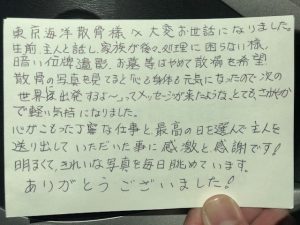 東京海洋散骨様 大変お世話になりました。
生前 主人と話し、家族が後、処理に困らない様、
暗い位牌 遺影、お墓等はやめて散骨を希望
散骨の写真を見てると心も身体も元気になったので次の
世界に出発するよ〜、ってメッセージが来たような、とても、さわやか
で軽い気持になりました。
心がこもった丁寧な仕事と最高の日を選んで主人を
送り出していただいた事に感激と感謝です!
明るくて、きれいな写真を毎日眺めています。
ありがとうございました!